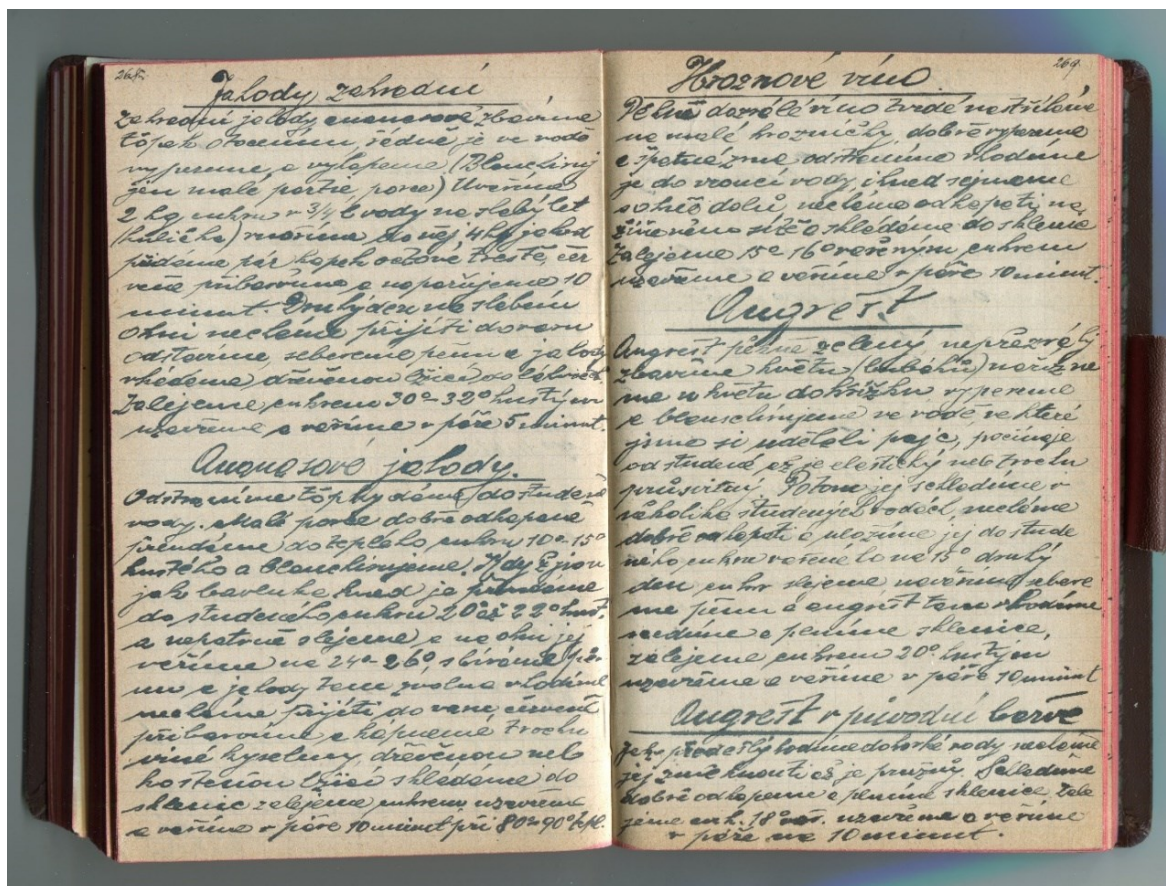 268.
Jahody zahradní
Zahradní jahody ananasové zbavíme
stopek otočením, řádně je ve vodě
vypereme, a vykapeme (Blanchíruj
jen malé partie, porce) Uvaříme
2 kg. cukru v 3/4 l vody na slabý let
(kulička) vnoříme do něj 4 kg jahod
přidáme pár kapek octové trestě, čer
veně přibarvíme a napařujeme 10
minut. Druhý den na slabém
ohni necháme přijíti do varu
odstavíme, sebereme pěnu a jahody
vkládáme dřevěnou lžicí do láhviček
Zalejeme cukrem 30°-32° hustým
uzavřeme a vaříme v páře 5 minut.
Ananasové jahody.
Odstraníme stopky dáme do studené
vody. Malé porce dobře odkapané
přendáme do teplého cukru 10°-15°
hustého a blanchírujeme. Když jsou
jako bavlnka hned je přendáme
do studeného cukru 20° až 22° hust.
a opatrně slejeme a na ohni jej
vaříme na 24°-26° sbíráme pě
nu a jahody tam zvolna vložíme
necháme přijíti do varu červeně
přibarvíme a kápneme trochu
vinné kyseliny, dřevěnou nebo
kostěnou lžicí skládáme do
sklenic zalejeme cukrem, uzavřeme
a vaříme v páře 10 minut při 80°-90° tepl.
269
Hroznové víno.
Pěkně dozrálé víno tvrdé nastříháme
na malé hrozníčky dobře vypereme
a špatné zrna odstraníme vložíme
je do vroucí vody, ihned sejmeme
s ohně dolů, necháme odkapati na
žíněném sítě a skládáme do sklenic
Zalejeme 15° a 16° vařeným cukrem
uzavřeme a vaříme v páře 10 minut.
Angrešt
Angrešt pěkně zelený nepřezrálý
zbavíme květu (bubáku) nařízne
me u květu do křížku vypereme
a blanchírujeme ve vodě, ve které
jsme si udělali pajc, počínaje
od studené až je elastický neb trochu
průsvitný. Potom jej schladíme v
několika studených vodách, necháme
dobře odkapati a vložíme jej do stude
ného cukru vařeného na 15° druhý
den cukr slejeme, svaříme, sebere
me pěnu a angrešt tam vhodíme
sundáme a plníme sklenice,
zalejeme cukrem 20° hustým
uzavřeme a vaříme v páře 10 minut
Angrešt v původní barvě
Jako předešlý hodíme do horké vody necháme
jej změknouti až je pružný. Schladíme
dobře odkapeme a plníme sklenice, zale
jeme cuk. 18° vař. uzavřeme a vaříme
v páře na 10 minut.